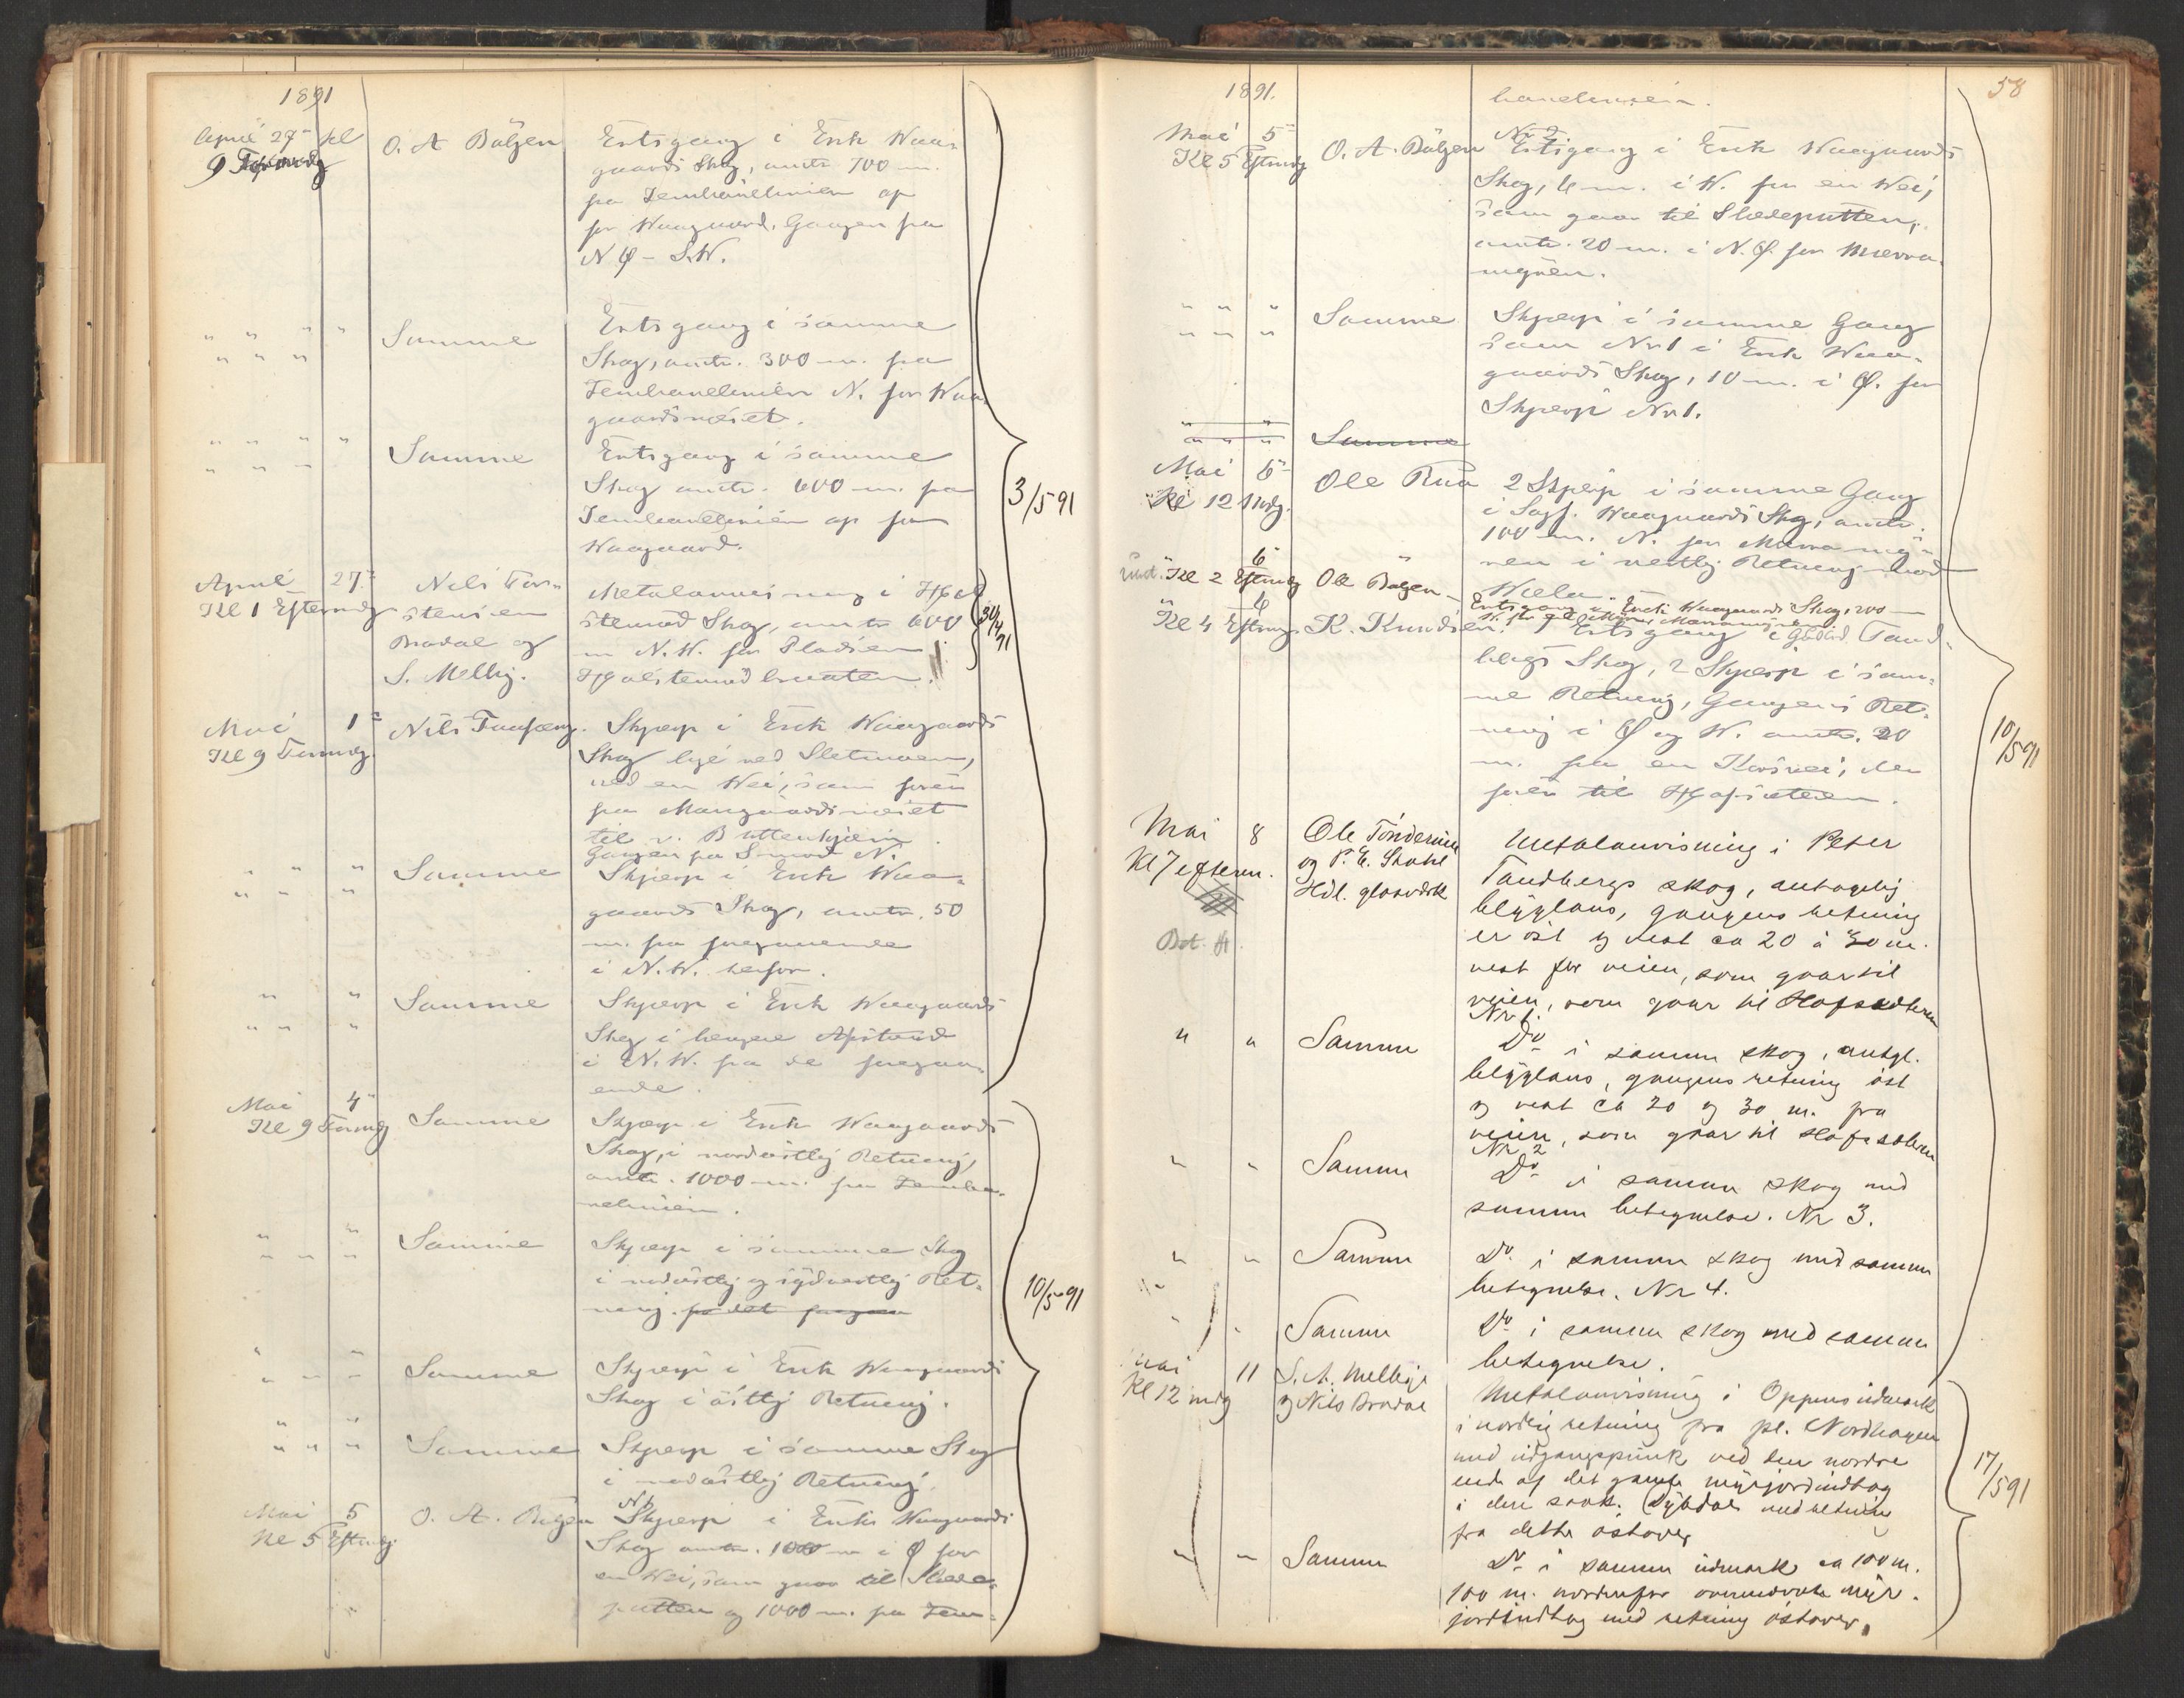 1891
April 27de kl
9 Formdg
O. A. Bølgen
Ertsgang i Erik Waa-
gaards Skog, omtr. 700 m.
fra Jernbanelinien op
for Waagaard. Gangen fra
N Ø - S.W.
" " " "
" " "
Samme
Ertsgang i samme
Skog, omtr. 300 m. fra
Jernbanelinien N. for Waa-
gaardsnæset.
" " " "
" " "
Samme
Ertsgang i samme
Skog omtr. 600 m. fra
Jernbanelinien op for
Waagaard.
3/5 91
April 27de
Kl 1 Eftermdg
Nils Tor-
stensen
Bradal og
S. Melby.
Metalanvisning i
Skog, omtr 600
m N.W. for Pladsen
30/4 91
Mai 1ste
Kl 9 Formdg.
Nils
Skjærp i Erik Waagaards
Skog lige ved Sletmoen,
ved en Wei, som fører
fra
til
Gangen fra S mod N.
" " "
" " "
Samme
Skjærp i Erik Waa-
gaards Skog, omtr. 50
m. fra foregaaende
i N.W. herfor.
" "
" " "
Samme
Skjærp i Erik Waagaards
Skog i længere Afstand
i N.W. fra de foregaa-
ende.
Mai 4de
Kl 9 Formdg
Samme
Skjærp i Erik Waagaards
Skog, i nordøstlig Retning,
omtr. 1000 m. fra Jernba-
nelinien.
" "
" " "
Samme
Skjærp i samme Skog
i nordøstlig og sydvestlig Ret-
ning. fra det foregaa
10/5 91
" "
" " "
Samme
Skjærp i Erik Waagaards
Skog i østlig Retning.
" "
" " "
Samme
Skjærp i samme Skog
i nordøstlig Retning.
Mai 5
Kl 5 Eftmdg.
O. A. Bølgen
N 1
Skjærp i Erik Waagaards
Skog omtr. 1000 m i Ø for
en Wei, som gaar til Slæde-
putten og 1000 m. fra Jern-
1891.
58
banelinien.
Mai 5te
Kl 5 Eftmdg
O. A. Bølgen
Nr 2
Ertsgang i Erik Waagaards
Skog, 6 m. i W. for en Wei,
som gaar til Slædeputten,
omtr. 20 m. i N.Ø. for Marra-
myren.
" " "
" " "
Samme
Skjærp i samme Gang
som Nr 1 i Erik Waa-
gaards Skog, 10 m. i Ø. for
Skjærp Nr 1.
" "
" " "
Samme
Mai 6te
Kl 12 Mdg.
Ole Rua
2 Skjærp i samme Gang
i Waagaards Skog, omtr.
100 m. N. for Marramy-
ren i vestlig Retning mod
Kl 2 Eftmdg 6te
Ole Bølgen
Ertsgang i Erik Waagaards Skog, 200
" 6
Kl 4 Eftmdg
K. Knudsen.
1 Ertsgang i Tand-
bergs Skog, 2 Skjærp i sam-
me Retning, Gangens Ret-
ning i Ø og W. omtr. 20
m. fra en Korsvei, der
fører til Hofsæteren.
10/5 91
Mai 8
Kl 7 efterm.
Ole Tønderum
og P. E. Stahl
Hdl. glasværk
Bet. H.
Metalanvisning i Peter
Tandbergs skog, antagelig
blyglans, gangens retning
er øst og vest ca 20 à 30 m.
vest for veien, som gaar til
veien, som gaar til Hofsæteren
Nr 1.
" "
Samme
Do i samme skog, antgl.
blyglans, gangens retning øst
og vest ca 20 og 30 m. fra
veien, som gaar til Hofsæteren
Nr 2
" "
Samme
Do i samme skog med
samme betegnelse. Nr 3.
" "
Samme
Do i samme skog med samme
betegnelse. Nr 4.
" "
Samme
Do i samme skog med samme
betegnelse.
Mai 11
Kl 12 mdg
S. A. Melbye
og Nils Bradal
Metalanvisning i Oppens udmark
i nordlig retning fra pl. Nordhagen
med udgangspunk ved den nordre
ende af det gamle myrjordindtag
i den saak. Dybdal med retning
fra dette østover
17/5 91
" "
Samme
Do i samme udmark ca 100 m.
100 m. nordenfor ovennævnte myr-
jordindtag med retning østover.